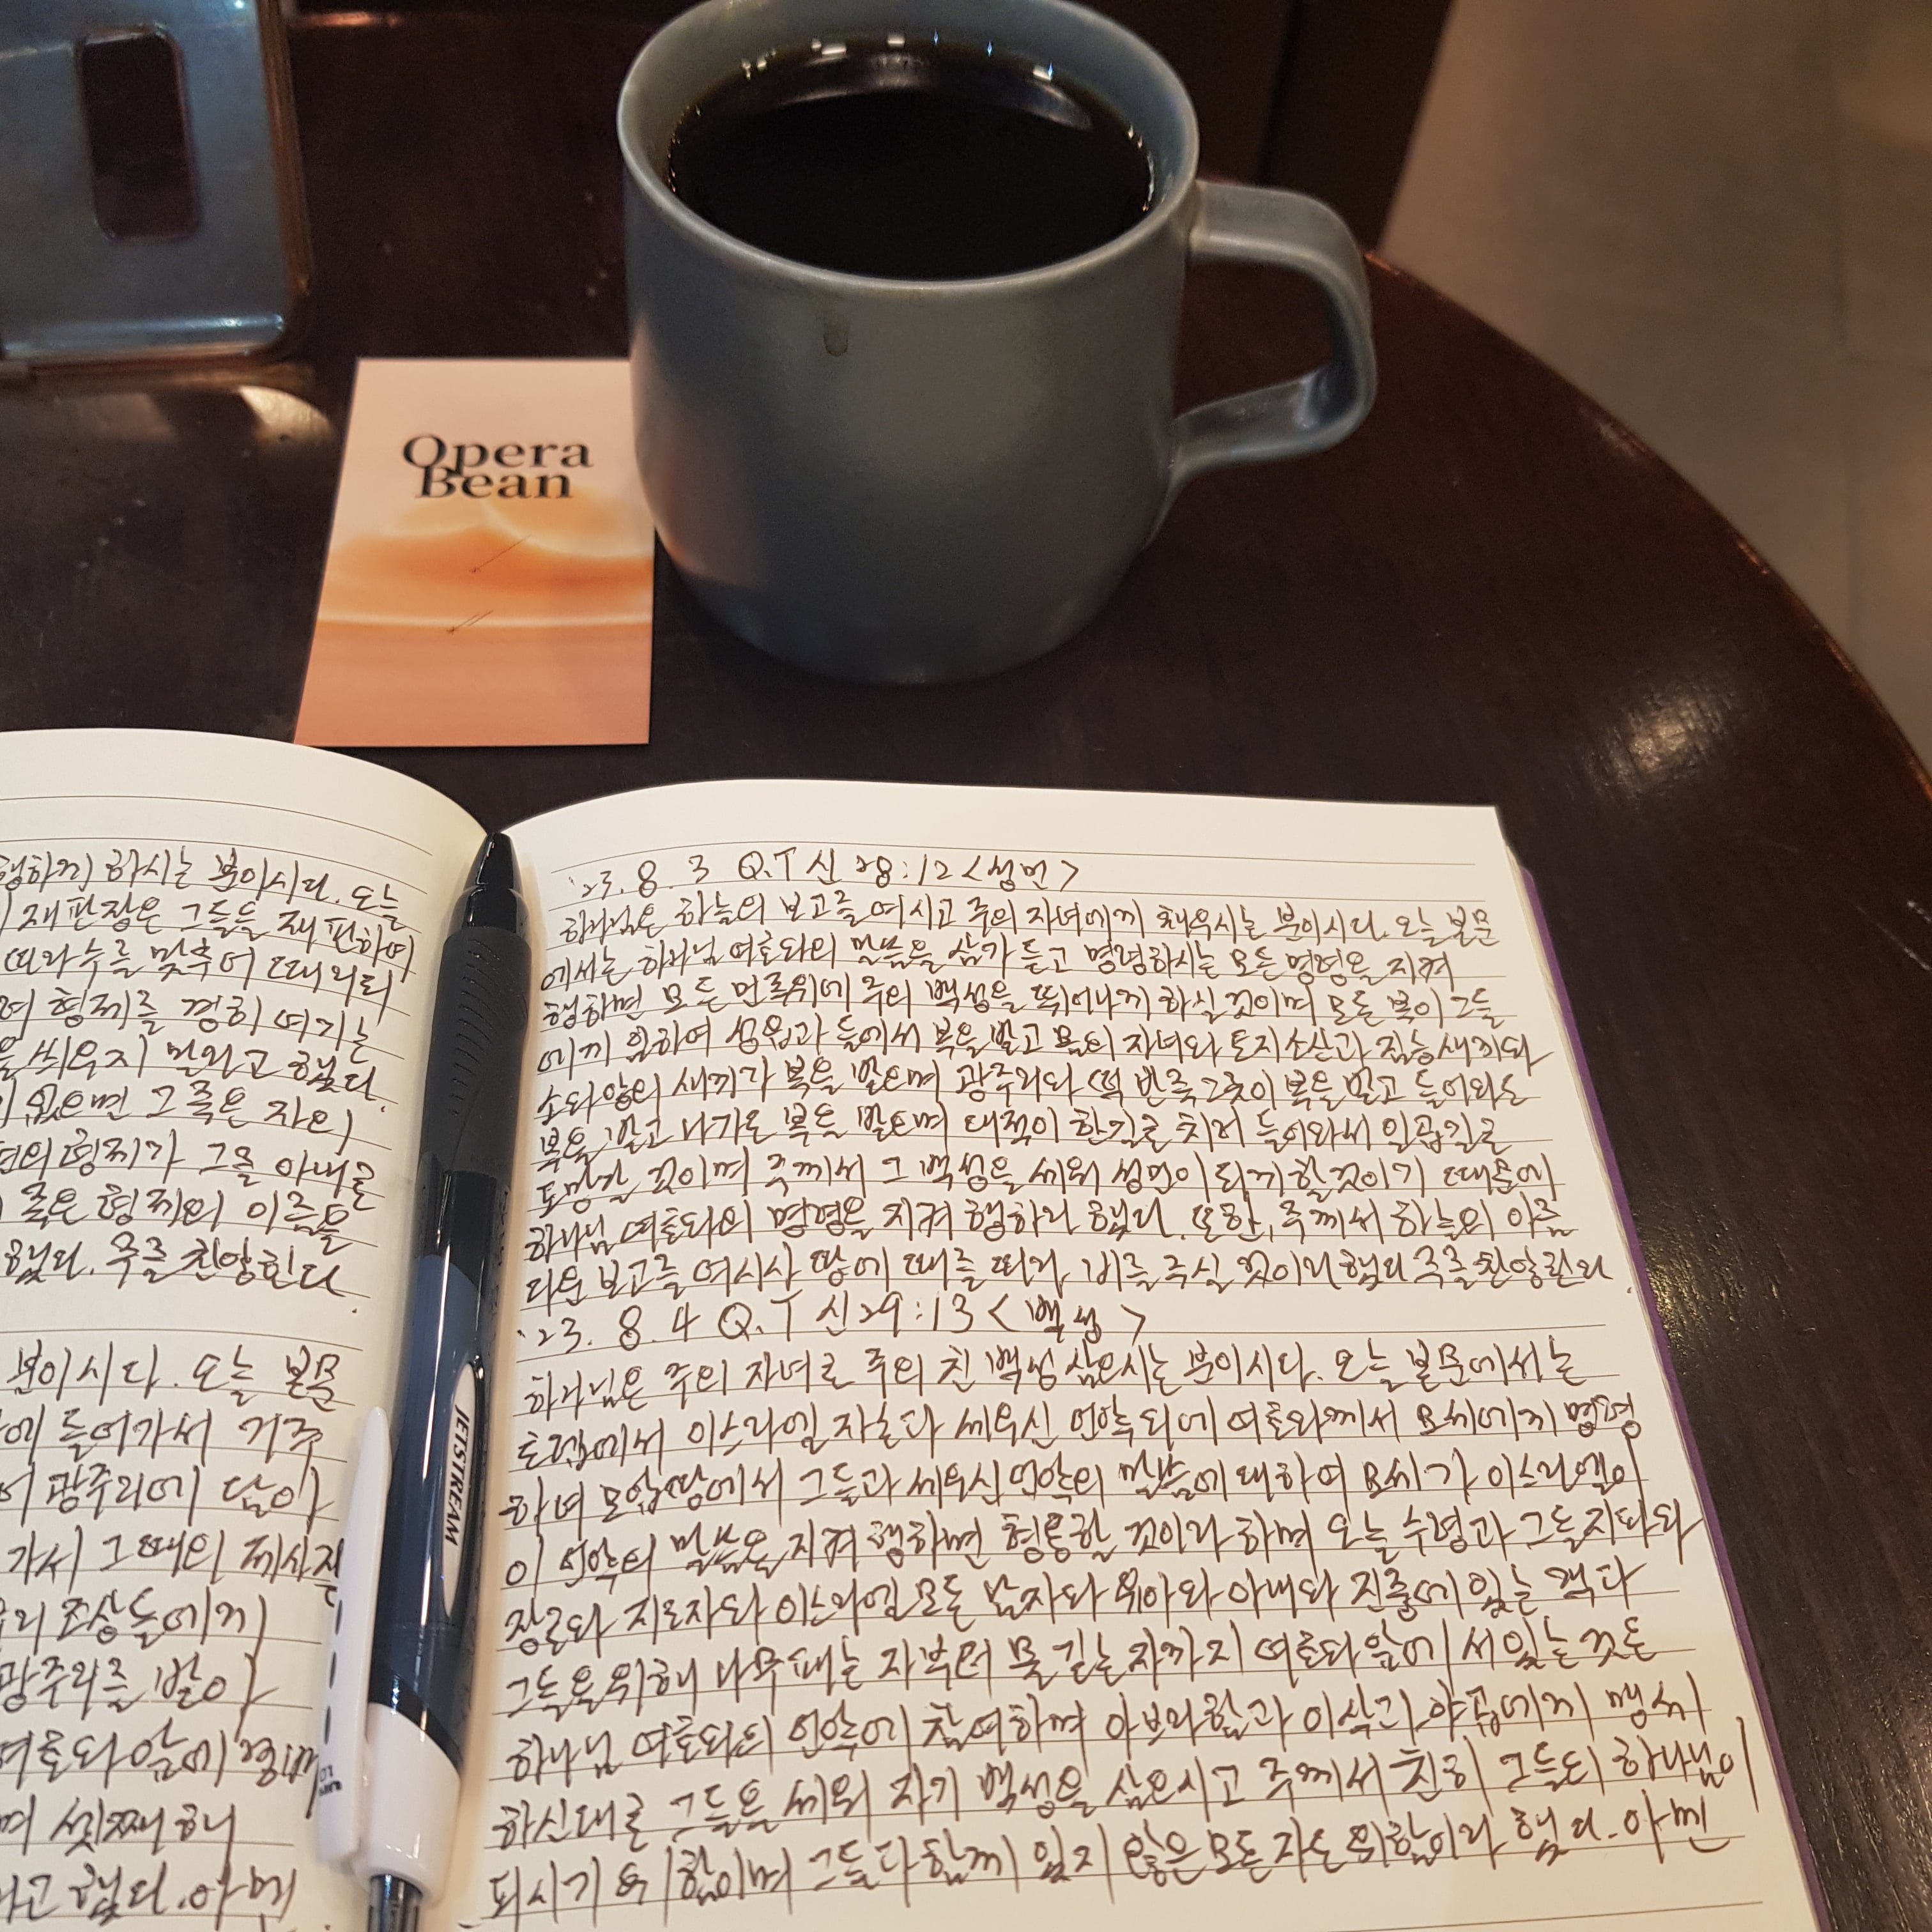 Opera
Bean
행하게 하시는 분이시다. 오늘
재판장은 그들을 재판하여
따라 수를 맞추어 때리되
형제를 경히 여기는
씌우지 말라고 했다.
있으면 그 죽은 자의
형제가 그를 아내로
죽은 형제의 이름을
했다. 주를 찬양한다.
분이시다. 오늘 본문
에 들어가서 거주
광주리에 담아
가서 그때의 제사장
우리 조상들에게
광주리를 받아
여호와 앞에
며 셋째 해
라고 했다. 아멘
JETSTREAM
'23. 8. 3 Q.T 신 28:12 <성민>
하나님은 하늘의 보고를 여시고 주의 자녀에게 채우시는 분이시다. 오늘 본문
에서는 하나님 여호와의 말씀을 삼가 듣고 명령하시는 모든 명령을 지켜
행하면 모든 민족위에 주의 백성을 뛰어나게 하실 것이며 모든 복이 그들
에게 임하여 성읍과 들에서 복을 받고 몸의 자녀와 토지소산과 짐승새끼와
소와 양의 새끼가 복을 받으며 광주리와 떡 반죽그릇이 복을 받고 들어와도
복을 받고 나가도 복을 받으며 대적이 한길로 치러 들어와서 일곱길로
도망갈 것이며 주께서 그 백성을 세워 성민이 되게 할것이기 때문에
하나님 여호와의 명령을 지켜 행하라 했다. 또한, 주께서 하늘의 아름
다운 보고를 여시사 땅에 때를 따라 비를 주실 것이라 했다 주를 찬양한다.
'23. 8. 4 Q.T 신 29:13 <백성>
하나님은 주의 자녀로 주의 친 백성 삼으시는 분이시다. 오늘 본문에서는
호렙에서 이스라엘 자손과 세우신 언약외에 여호와께서 모세에게 명령
하여 모압땅에서 그들과 세우신 언약의 말씀에 대하여 모세가 이스라엘이
이 언약의 말씀을 지켜 행하면 형통할 것이라 하며 오늘 수령과 그들지파와
장로와 지도자와 이스라엘 모든 남자와 유아와 아내와 진중에 있는 객과
그들을 위해 나무패는 자부터 물 긷는 자까지 여호와 앞에 서 있는 것은
하나님 여호와의 언약에 참여하며 아브라함과 이삭과 야곱에게 맹세
하신대로 그들을 세워 자기 백성을 삼으시고 주께서 친히 그들의 하나님이
되시기 위함이며 그들과 함께 있지 않은 모든 자도 위함이라 했다. 아멘